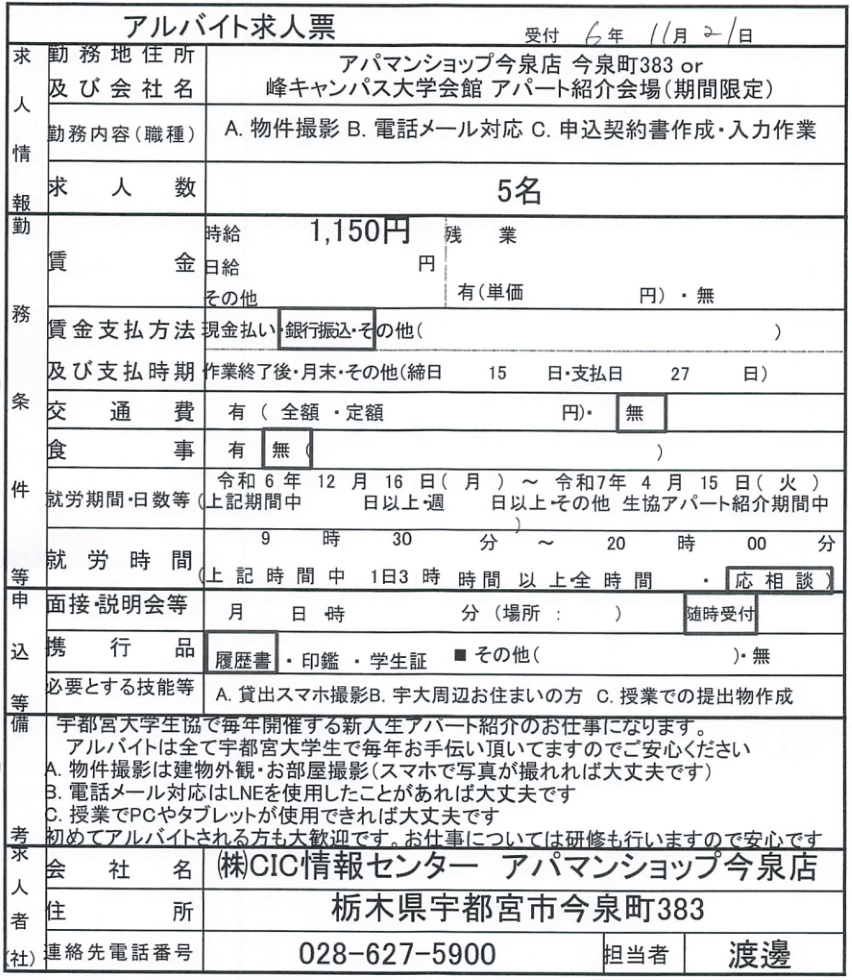 アルバイト求人票
受付 6年 11月 21日
求人情報
勤務地住所
及び会社名
アパマンショップ今泉店 今泉町383 or
峰キャンパス大学会館 アパート紹介会場(期間限定)
勤務内容(職種)
A. 物件撮影 B. 電話メール対応 C. 申込契約書作成・入力作業
求人数
5名
勤務条件等
賃金
時給 1,150円
日給 円
その他
残業
有(単価 円)・無
賃金支払方法
現金払い・銀行振込・その他( )
及び支払時期
作業終了後・月末・その他(締日 15 日・支払日 27 日)
交通費
有 ( 全額 ・定額 円)・ 無
食事
有 無 ( )
就労期間・日数等
令和 6 年 12 月 16 日( 月 ) ～ 令和7年 4 月 15 日( 火 )
(上記期間中 日以上・週 日以上・その他 生協アパート紹介期間中
)
就労時間
9 時 30 分 ～ 20 時 00 分
(上記時間中 1日3 時 時間以上・全時間 ・ 応相談)
申込等
面接・説明会等
月 日 時 分 (場所 : ) 随時受付
携行品
履歴書 ・ 印鑑 ・ 学生証 ■ その他( )・無
必要とする技能等
A. 貸出スマホ撮影B. 宇大周辺お住まいの方 C. 授業での提出物作成
備考
宇都宮大学生協で毎年開催する新入生アパート紹介のお仕事になります。
アルバイトは全て宇都宮大学生で毎年お手伝い頂いてますのでご安心ください
A. 物件撮影は建物外観・お部屋撮影(スマホで写真が撮れれば大丈夫です)
B. 電話メール対応はLNEを使用したことがあれば大丈夫です
C. 授業でPCやタブレットが使用できれば大丈夫です
初めてアルバイトされる方も大歓迎です。お仕事については研修も行いますので安心です
求人者(社)
会社名
㈱CIC情報センター アパマンショップ今泉店
住所
栃木県宇都宮市今泉町383
連絡先電話番号
028-627-5900
担当者
渡邊